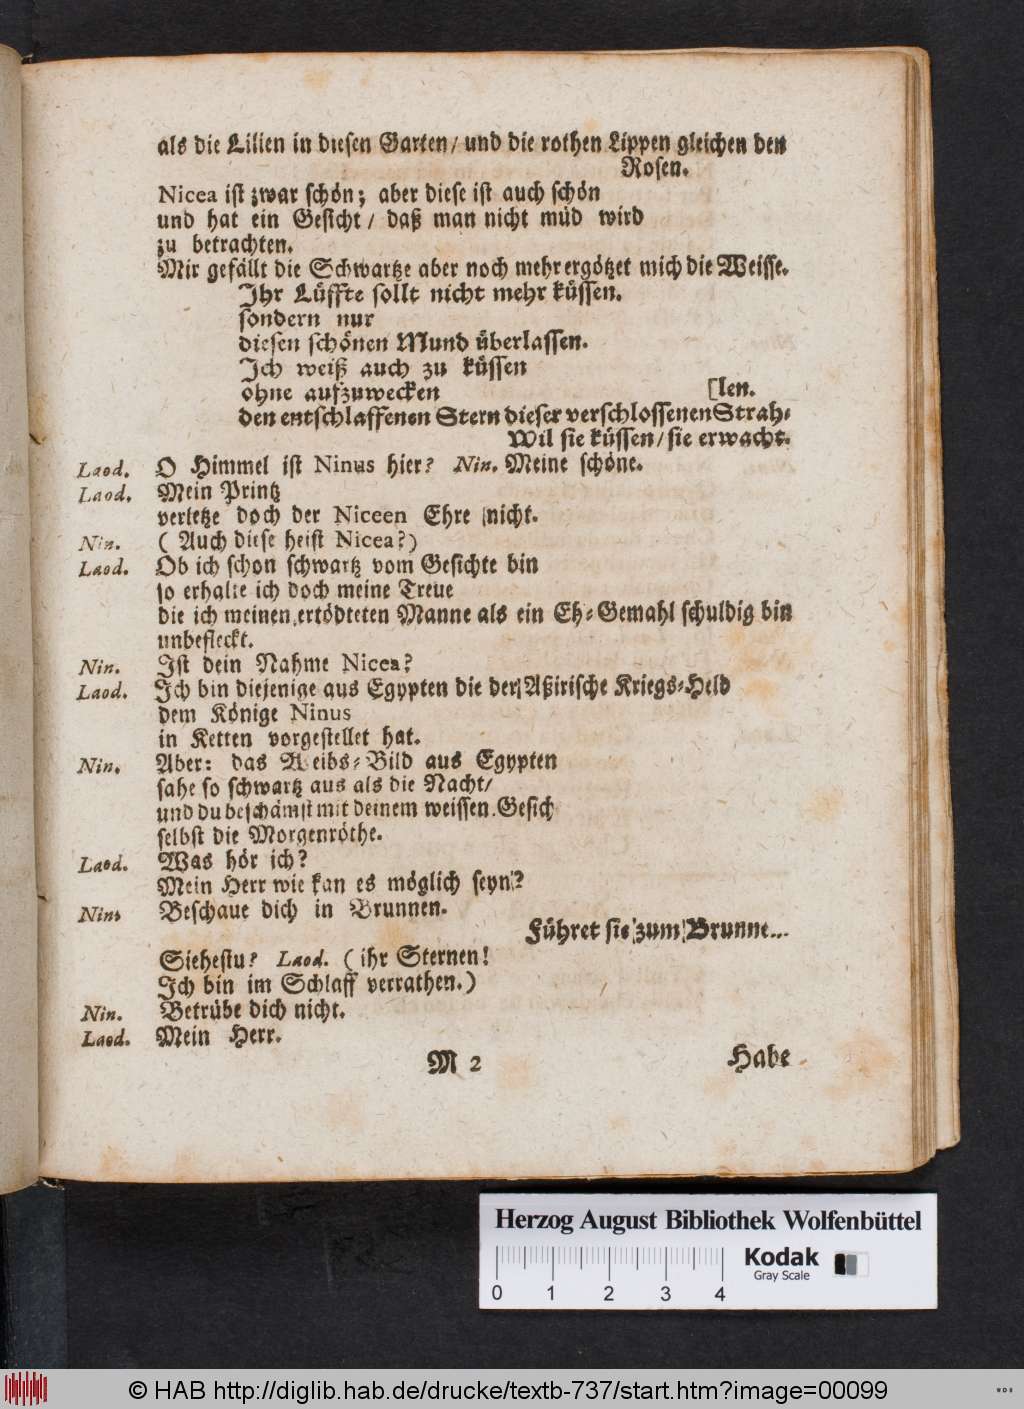 als die Lilien in diesen Garten/ und die rothen Lippen gleichen den
Rosen.
Nicea ist zwar schön; aber diese ist auch schön
und hat ein Gesicht/ daß man nicht müd wird
zu betrachten.
Mir gefällt die Schwartze aber noch mehr ergötzet mich die Weisse.
Ihr Lüffte sollt nicht mehr küssen.
sondern nur
diesen schönen Mund überlassen.
Ich weiß auch zu küssen
ohne aufzuwecken [len.
den entschlaffenen Stern dieser verschlossenen Strah-
Wil sie küssen/ sie erwacht.
Laod. O Himmel ist Ninus hier? Nin. Meine schöne.
Laod. Mein Printz
verletze doch der Niceen Ehre nicht.
Nin. ( Auch diese heist Nicea?)
Laod. Ob ich schon schwartz vom Gesichte bin
so erhalte ich doch meine Treue
die ich meinen ertödteten Manne als ein Eh-Gemahl schuldig bin
unbefleckt.
Nin. Ist dein Nahme Nicea?
Laod. Ich bin diejenige aus Egypten die der Aßirische Kriegs-Held
dem Könige Ninus
in Ketten vorgestellet hat.
Nin. Aber: das Weibs-Bild aus Egypten
sahe so schwartz aus als die Nacht/
und du beschämst mit deinem weissen Gesich
selbst die Morgenröthe.
Laod. Was hör ich?
Mein Herr wie kan es möglich seyn?
Nin. Beschaue dich in Brunnen.
Führet sie zum Brunne...
Siehestu? Laod. ( ihr Sternen!
Ich bin im Schlaff verrathen.)
Nin. Betrübe dich nicht.
Laod. Mein Herr.
M 2 Habe
Herzog August Bibliothek Wolfenbüttel
Kodak
Gray Scale
0 1 2 3 4
© HAB http://diglib.hab.de/drucke/textb-737/start.htm?image=00099